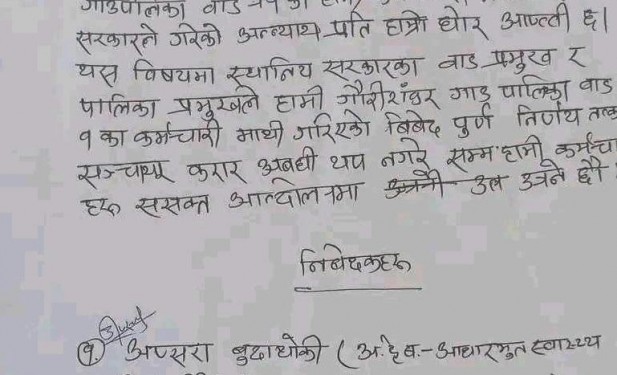 गाउपालिका वाड
सरकारले गरेको अन्न्याय प्रति हाम्रो घोर आपत्ती छ।
यस विषयमा स्थानिय सरकारका वाड प्रमुख र
पालिका प्रमुखले हामी गौरीशंकर गाउ पालिका वाड
१ का कर्मचारी माथी गरिएको बिबेद पुर्ण निर्णय तत्क
सच्याय करार अबधी थप नगरे सम्म हामी कर्मचा
हरु ससक्त आन्दोलनमा उत्रने छौ
निबेदकहरु
१ अप्सरा बुढाथोकी (अ.हे.ब.-आधारभुत स्वास्थ्य